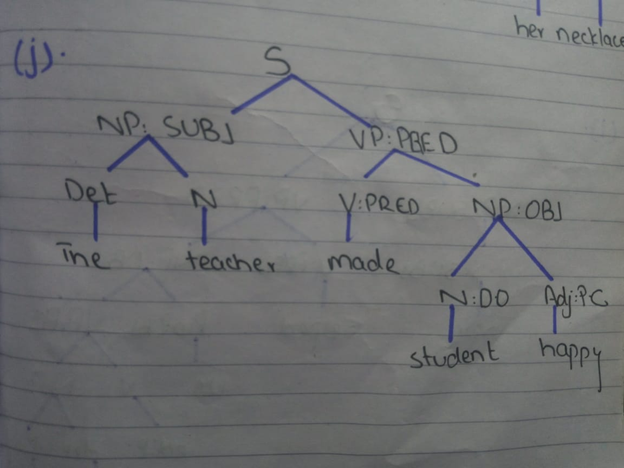 her necklace
(j).
S
NP: SUBJ VP:PRED
Det N V:PRED NP:OBJ
The teacher made
N:DO Adj:PC
student happy